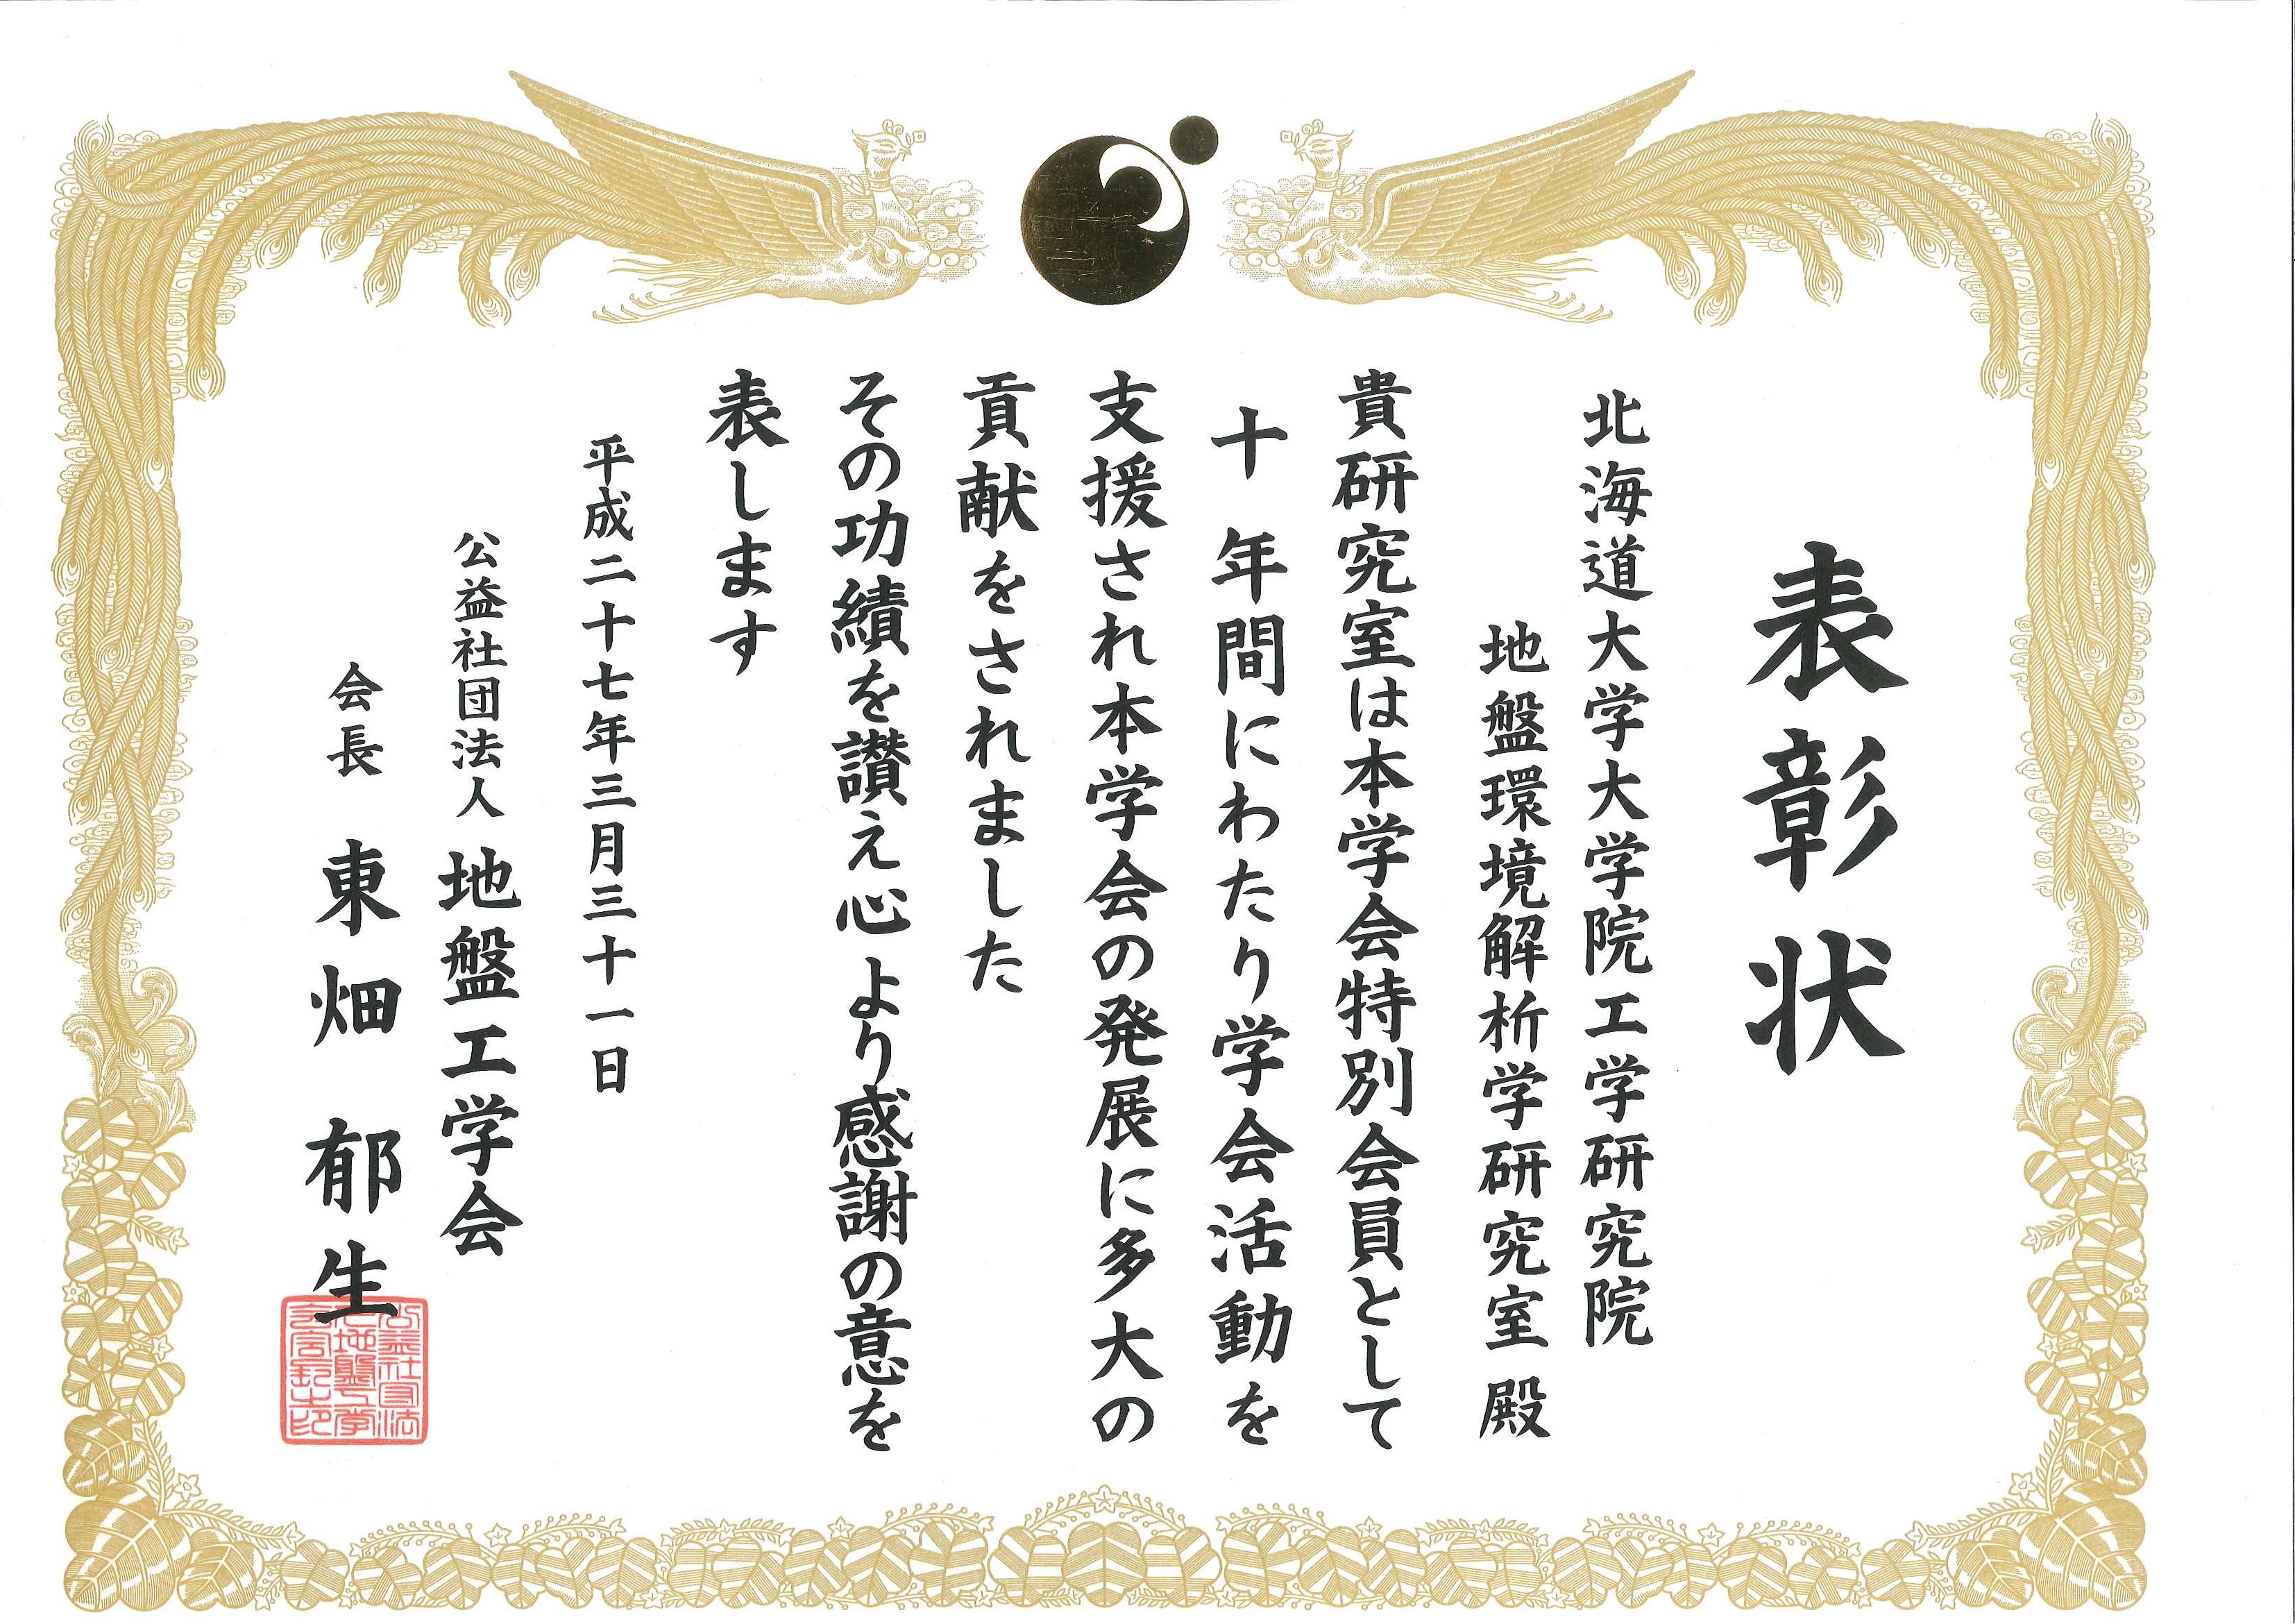 表彰状
北海道大学大学院工学研究院
地盤環境解析学研究室 殿
貴研究室は本学会特別会員として
十年間にわたり学会活動を
支援され本学会の発展に多大の
貢献をされました
その功績を讃え心より感謝の意を
表します
平成二十七年三月三十一日
公益社団法人 地盤工学会
会長 東畑郁生